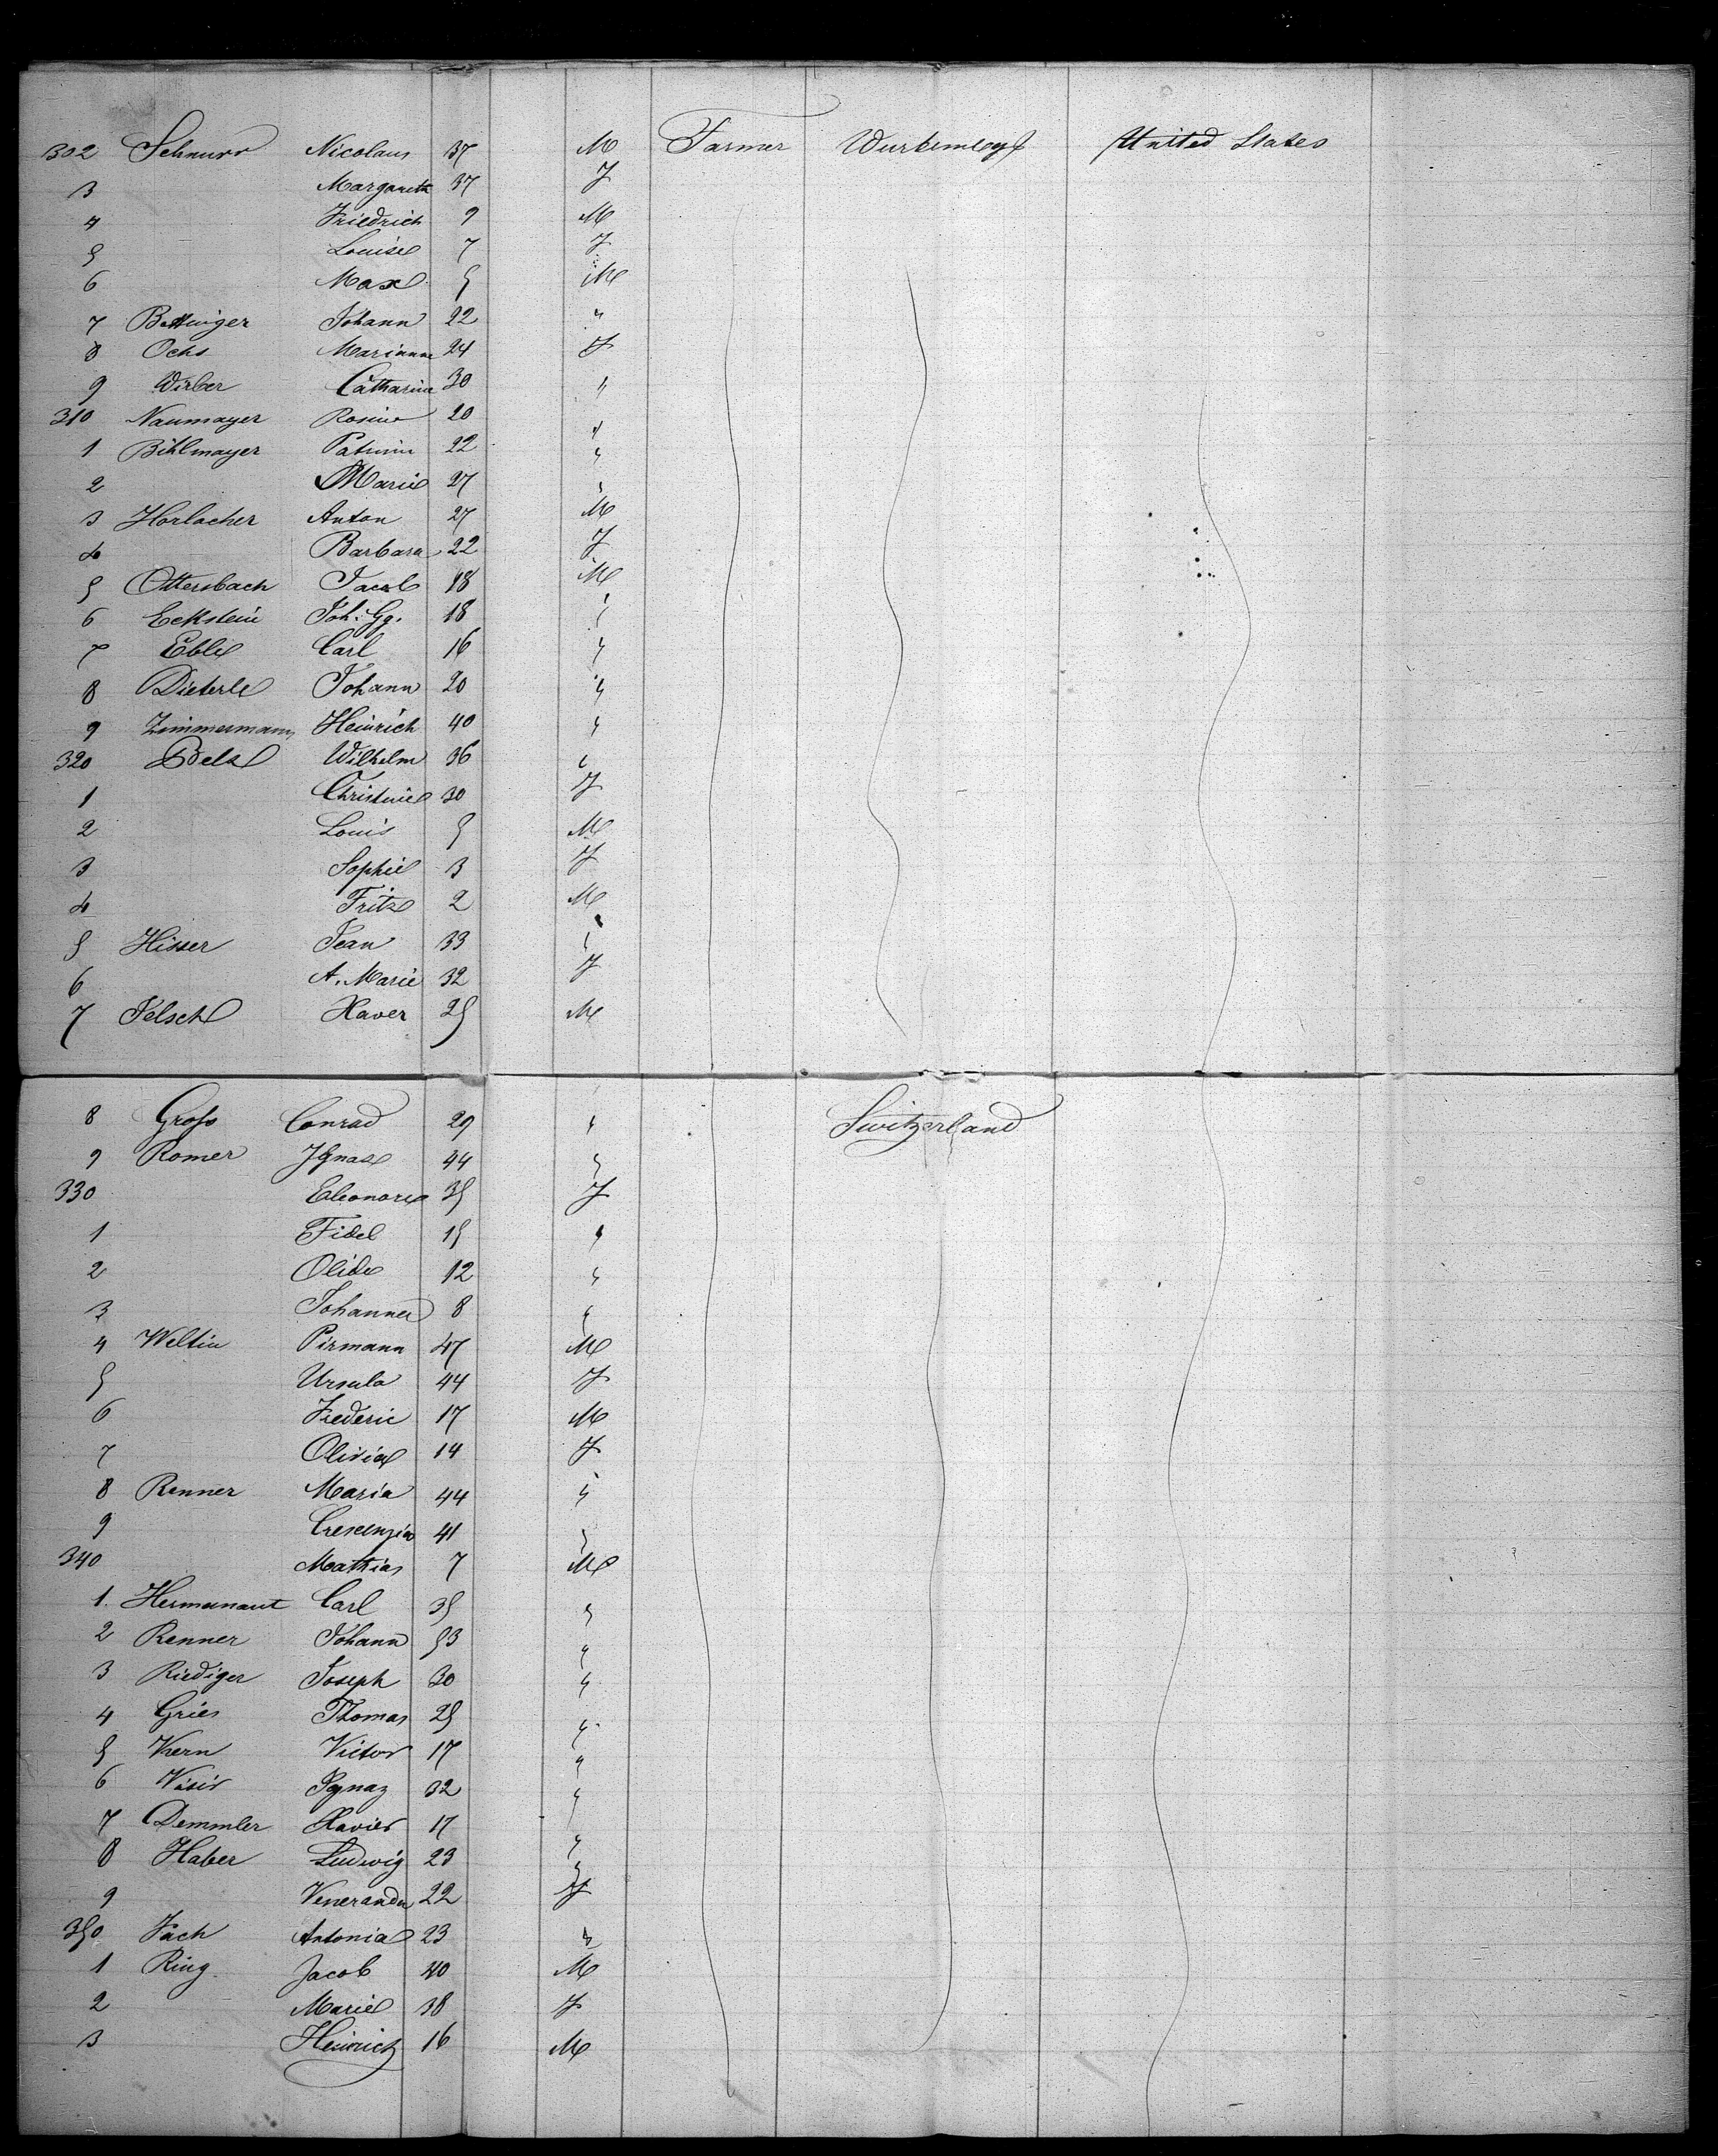 302 Schnurr Nicolaus 37 M Farmer Würtemberg United States
3 Margareth 37 F
4 Friedrich 9 M
5 Louise 7 F
6 Max 5 M
7 Johann 22 "
8 Ochs Marianne 24 F
9 Wirber Catharina 30 "
310 Naumayer Rosine 20 "
1 Bihlmayer 22 "
2 Marie 27 "
3 Horlacher Anton 27 M
4 Barbara 22 F
5 Ottersbach Jacob 18 M
6 Eckstein Joh. Gg. 18 "
7 Eble Carl 16 "
8 Dieterle Johann 20 "
9 Zimmermann Heinrich 40 "
320 Belz Wilhelm 36 "
1 Christine 30 F
2 Louis 5 M
3 Sophie 3 F
4 Fritz 2 M
5 Hisser Jean 33 "
6 A. Marie 32 F
7 Felsch Xaver 25 M
8 Gross Conrad 29 " Switzerland
9 Romer Ignaz 44 "
330 Eleonore 35 F
1 Fidel 15 "
2 Olide 12 "
3 Johanna 8 "
4 Weltin Pirmann 47 M
5 Ursula 44 F
6 Frederic 17 M
7 Olivia 14 F
8 Renner Maria 44 "
9 Crescenzia 41 "
340 Mathias 7 M
1. Carl 35 "
2 Renner Johann 53 "
3 Riediger Joseph 30 "
4 Gries Thomas 25 "
5 Kern Victor 17 "
6 Ignaz 32 "
7 Demmler Xavier 17 "
8 Haber Ludwig 23 "
9 Veneranda 22 F
350 Fach Antonia 23 "
1 Ring Jacob 40 M
2 Marie 38 F
3 Heinrich 16 M